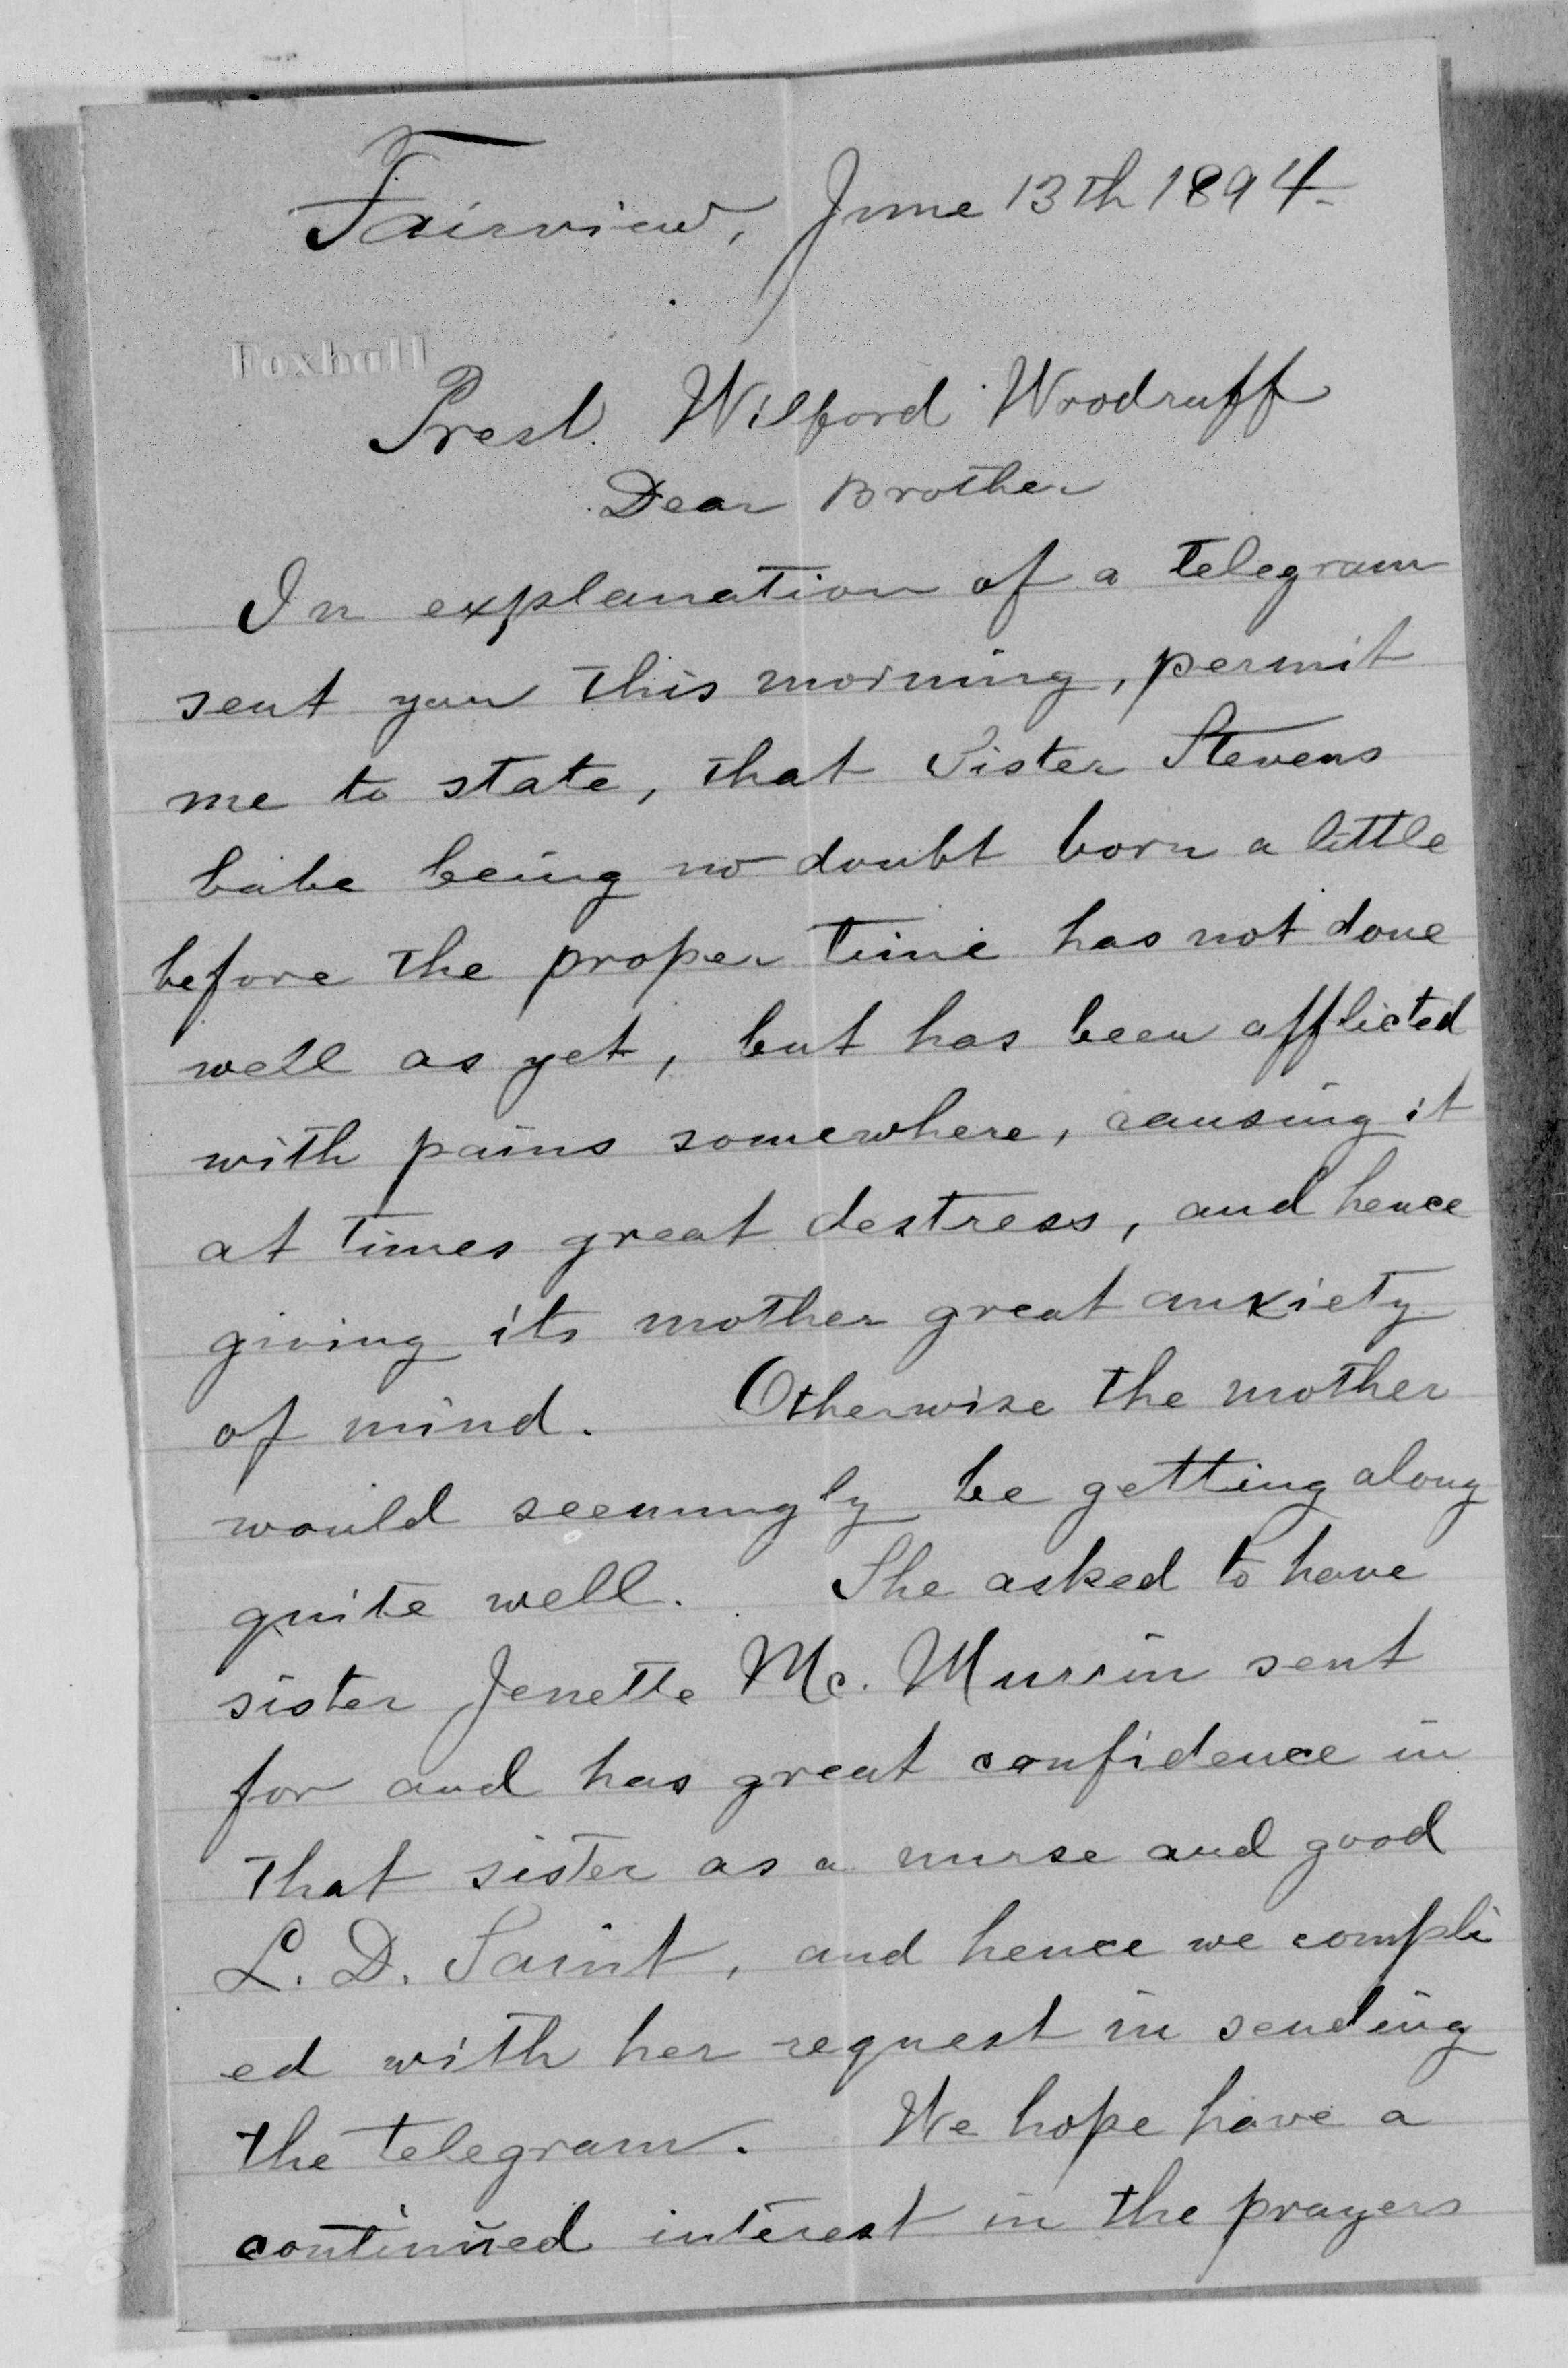 Fairview, June 13th 1894
Foxhall
Prest. Wilford Woodruff
Dear Brother
In explanation of a telegram
sent you this morning, permit
me to state, that Sister Stevens
babe being no doubt born a little
before the proper time has not done
well as yet, but has been afflicted
with pains somewhere, causing it
at times great destress, and hence
giving its mother great anxiety
of mind. Otherwise the mother
would seemingly be getting along
quite well. She asked to have
sister Jenette Mc. Murrin sent
for and has great confidence in
that sister as a nurse and good
L. D. Saint, and hence we compli
ed with her request in sending
the telegram. We hope have a
continued interest in the prayers